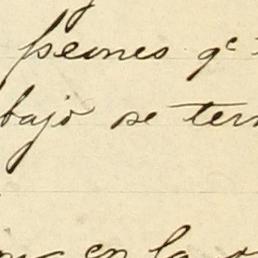 peones qe
bajo se ter
en la